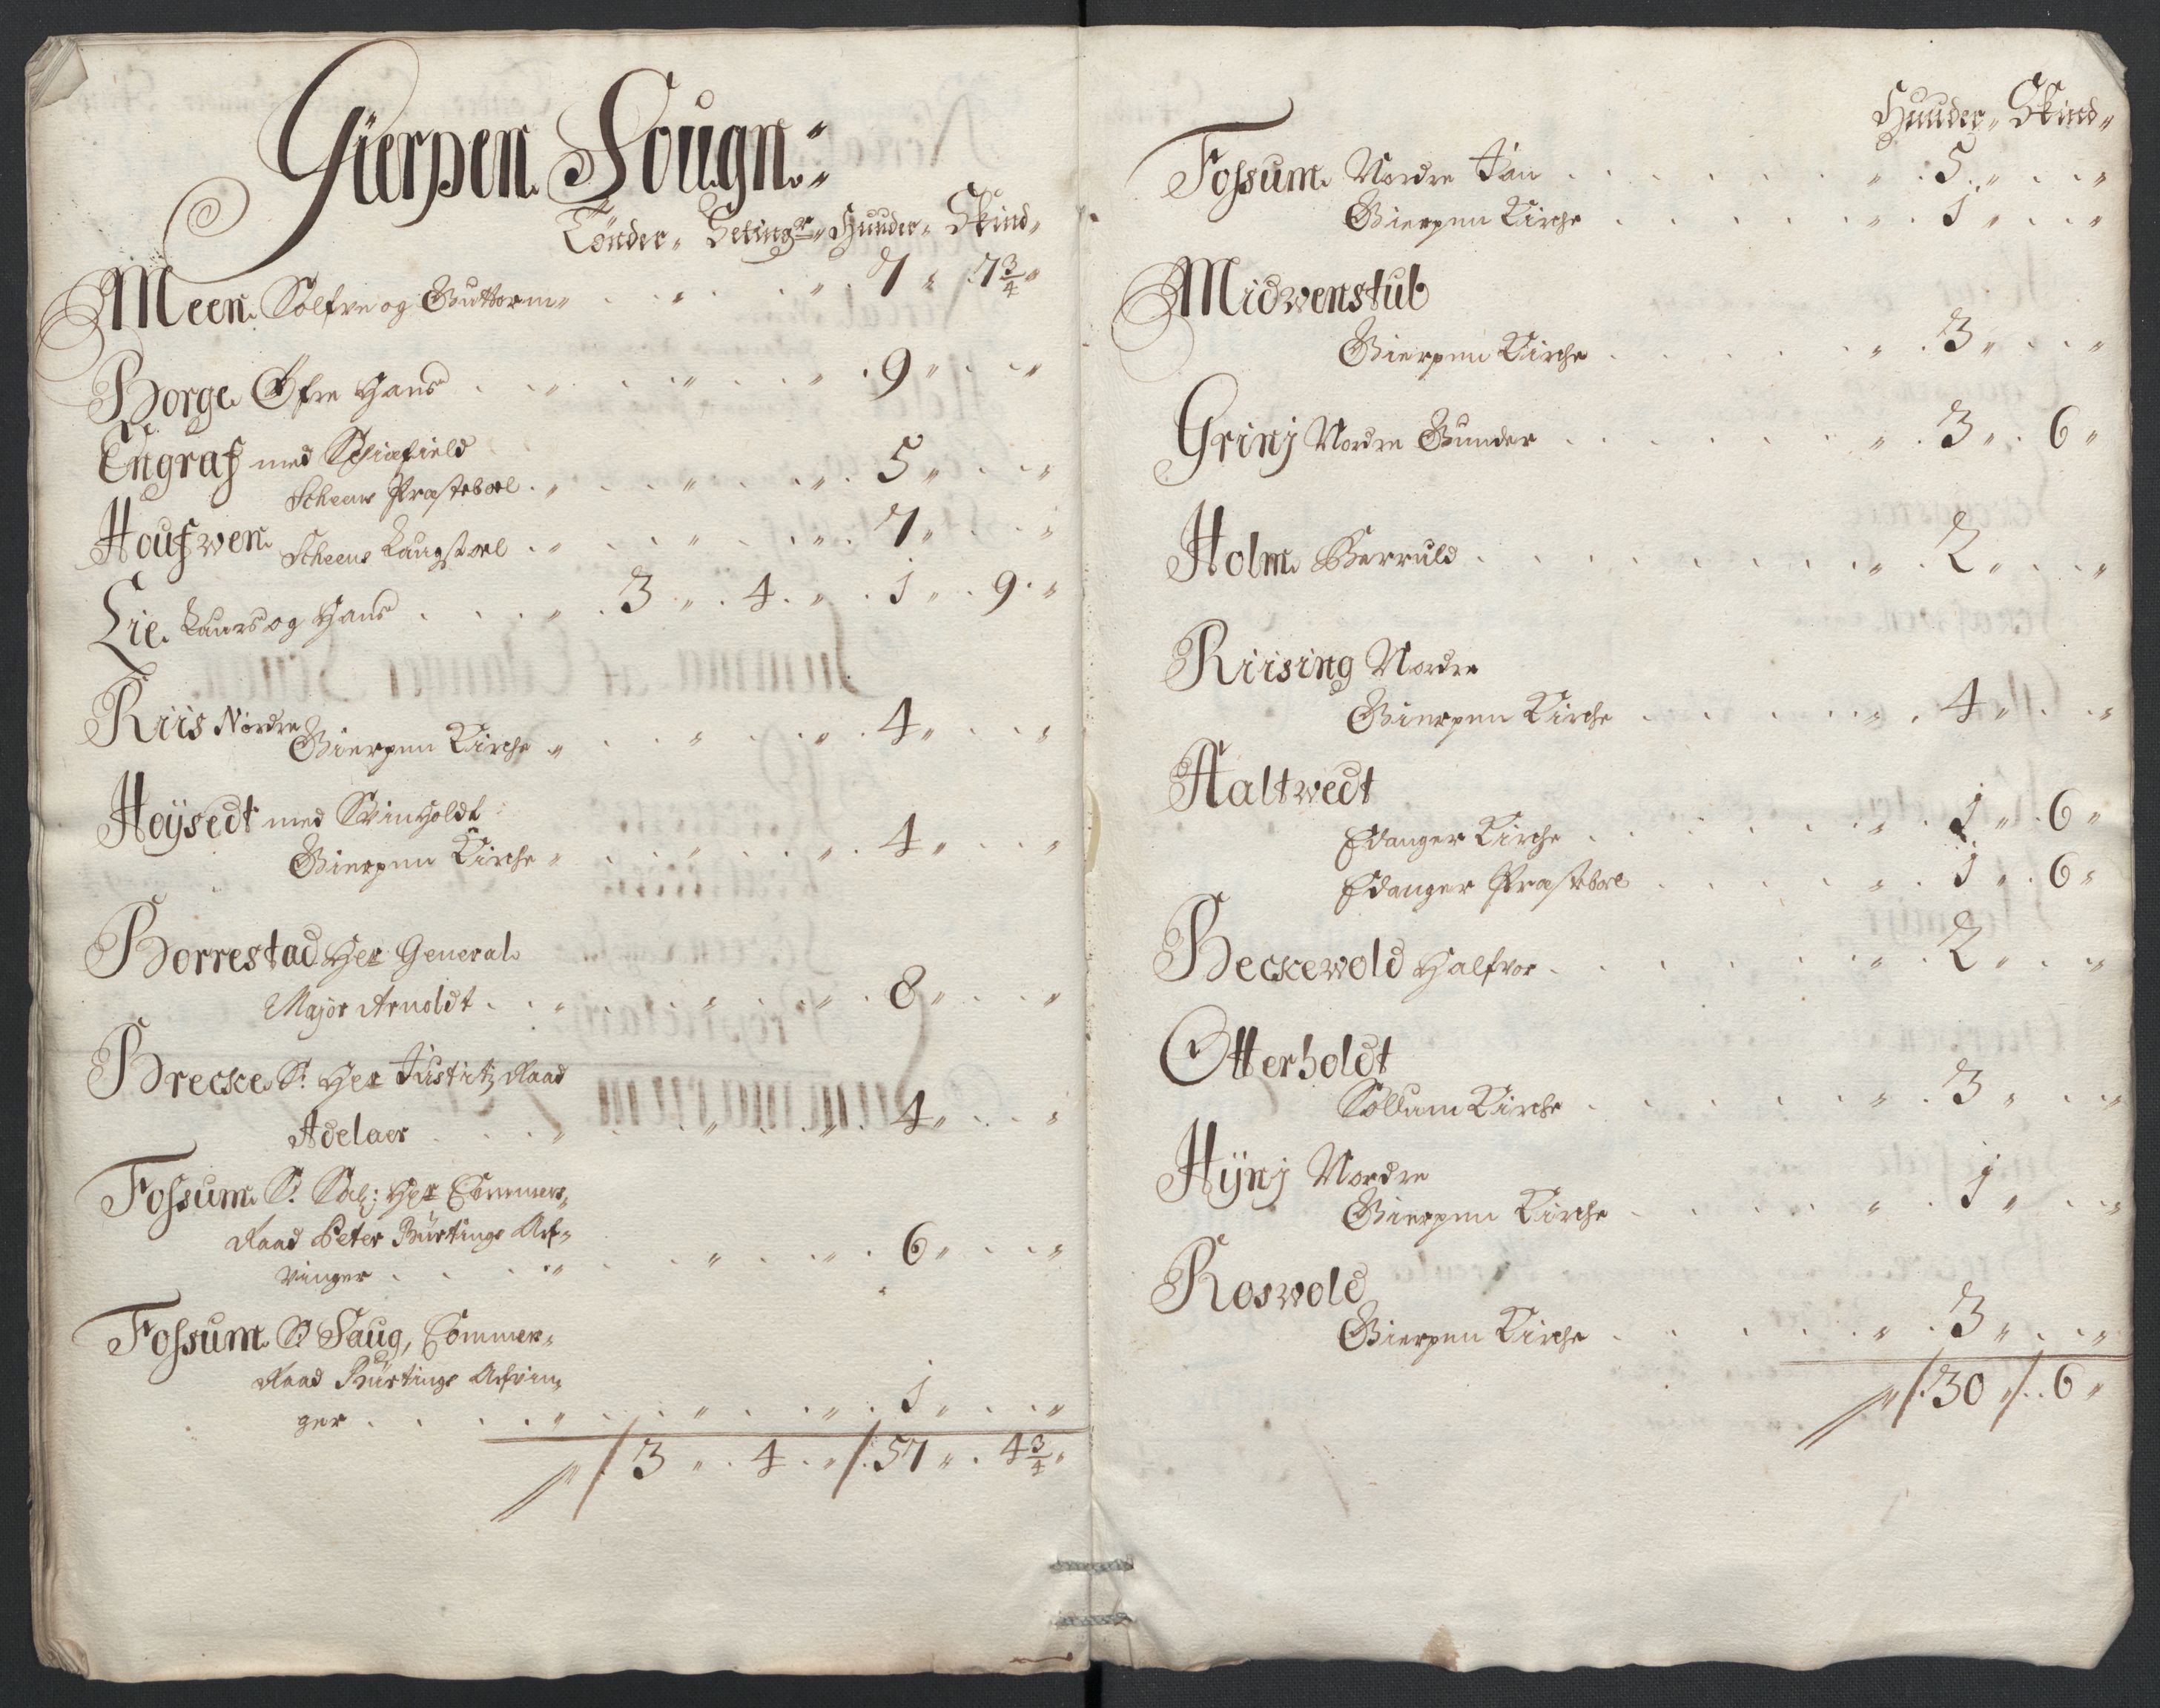 Gierpen Sougn
Tønder Setingr Huuder Skind
Meen Solfve og Guttorm 7 7 3/4
Borge Øfre Hans 9
Engraf med Schiefield
Scheens Præstebol 5
Houfwen Scheens Laugstoel 7
Lie Laurs og Hans 3 4 1 9
Riis Nordre
Gierpen Kirche 4
Høysedt med Svinholdt
Gierpen Kirche 4
Borrestad Her General
Major Arnoldt 8
Brecke S: Her Justitz Raad
Adelaer 4
Fossum S: Sal: Her Commers
Raad Peter Bürtings Arf-
vinger 6
Fossum S: Saug, Commer-
Raad Bürtings Arfvin-
ger 1
3 4 57 4 3/4
Huuder Skind
Fossum Nordre Jan 5
Gierpen Kirche 1
Midwenstub
Gierpen Kirche 3
Grinj Nordre Gunder 3 6
Holm Berruld 2
Riising Nordre
Gierpen Kirche 4
Haltwedt
Edanger Kirche 1 6
Edanger Præstebol 1 6
Beckewold Halfvor 2
Otterholdt
Sollum Kirche 3
Hÿnj Nordre
Gierpen Kirche 1
Roswold
Gierpen Kirche 3
30 6